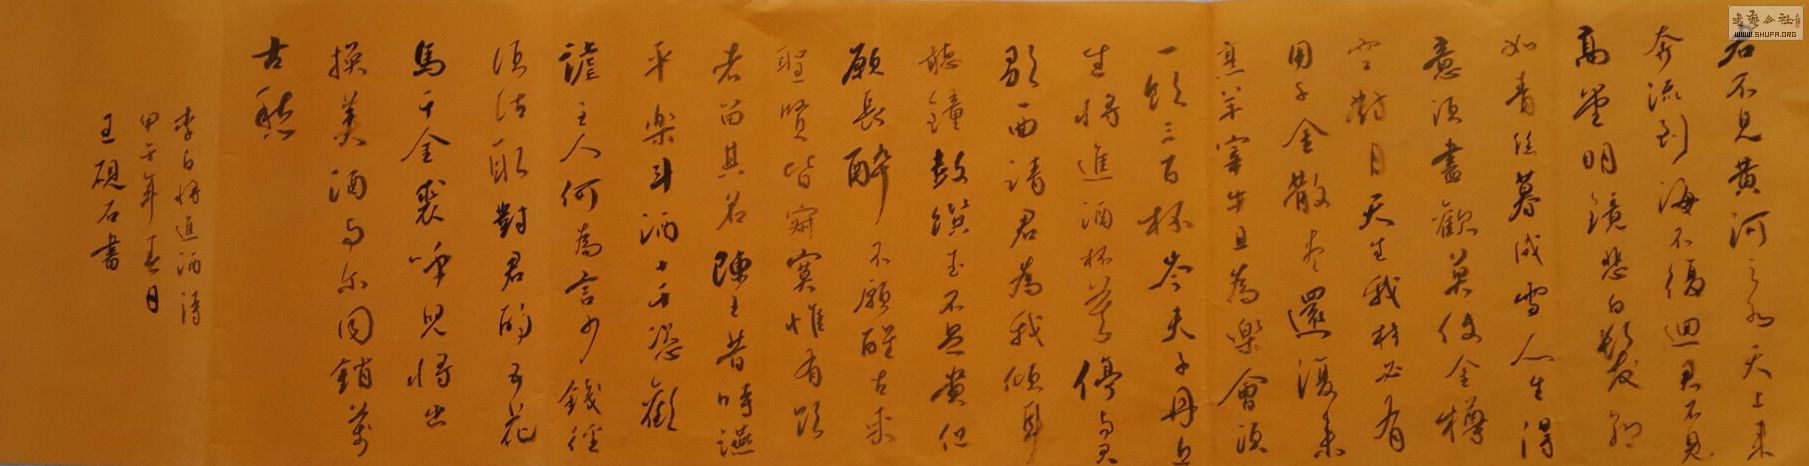 君不見黃河之水天上來
奔流到海不復迴君不見
高堂明鏡悲白髮朝
如青絲暮成雪人生得
意須盡歡莫使金樽
空對月天生我材必有
用千金散盡還復來
烹羊宰牛且為樂會須
一飲三百杯岑夫子丹丘
生將進酒杯莫停與君
歌一曲請君為我傾耳
聽鐘鼓饌玉不足貴但
願長醉不願醒古來
聖賢皆寂寞惟有飲
者留其名陳王昔時讌
平樂斗酒十千恣歡
謔主人何為言少錢徑
須沽取對君酌五花
馬千金裘呼兒將出
換美酒與爾同銷萬
古愁
李白將進酒詩
甲午年春月
王硯石書
書藝公社
WWW.SHUFA.ORG